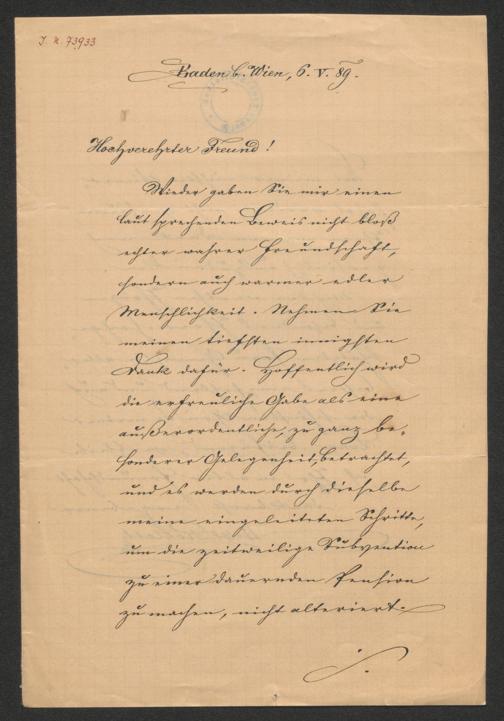 J. N. 73933
Baden b. Wien, 6. V. 89.
Hochverehrter Freund!
Wieder gaben Sie mir einen
laut sprechenden Beweis nicht bloß
echter wahrer Freundschaft,
sondern auch warmer edler
Menschlichkeit. Nehmen Sie
meinen tiefsten innigsten
Dank dafür. Hoffentlich wird
die erfreuliche Gabe als eine
außerordentliche, zu ganz be-
sonderer Gelegenheit, betrachtet,
und es werden durch dieselbe
meine eingeleiteten Schritte,
um die zeitweilige Subvention
zu einer dauernden Pension
zu machen, nicht alteriert.